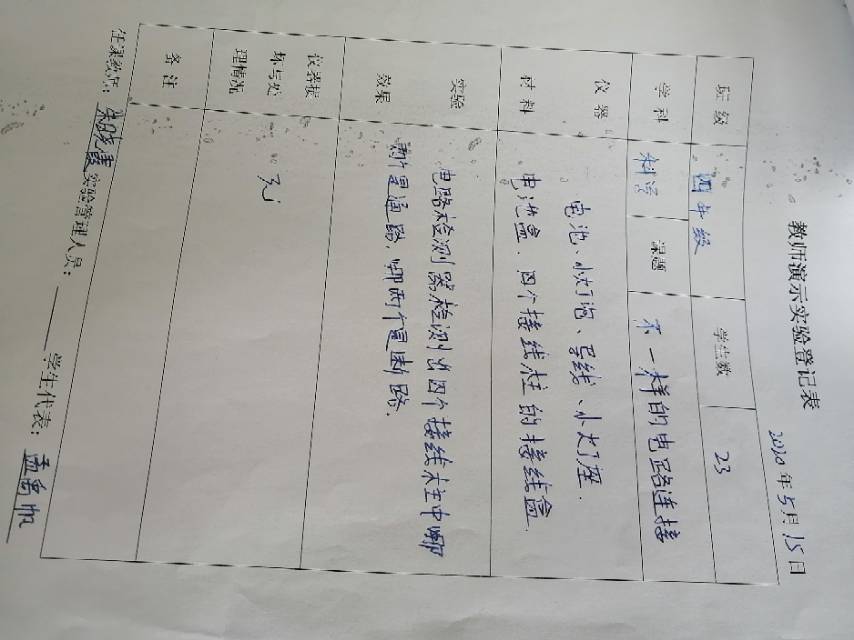 教师演示实验登记表
2020年5月15日
班级 四年级 学生数 23
学科 科学 课题 不一样的电路连接
仪器 电池、小灯泡、导线、小灯座.
材料 电池盒、四个接线柱的接线盒.
实验 电路检测器检测出四个接线柱中哪
效果 两个是通路,哪两个是断路.
仪器损
坏与处 无
理情况
备注
任课教师: 朱晓霞 实验管理人员: 学生代表: 孟